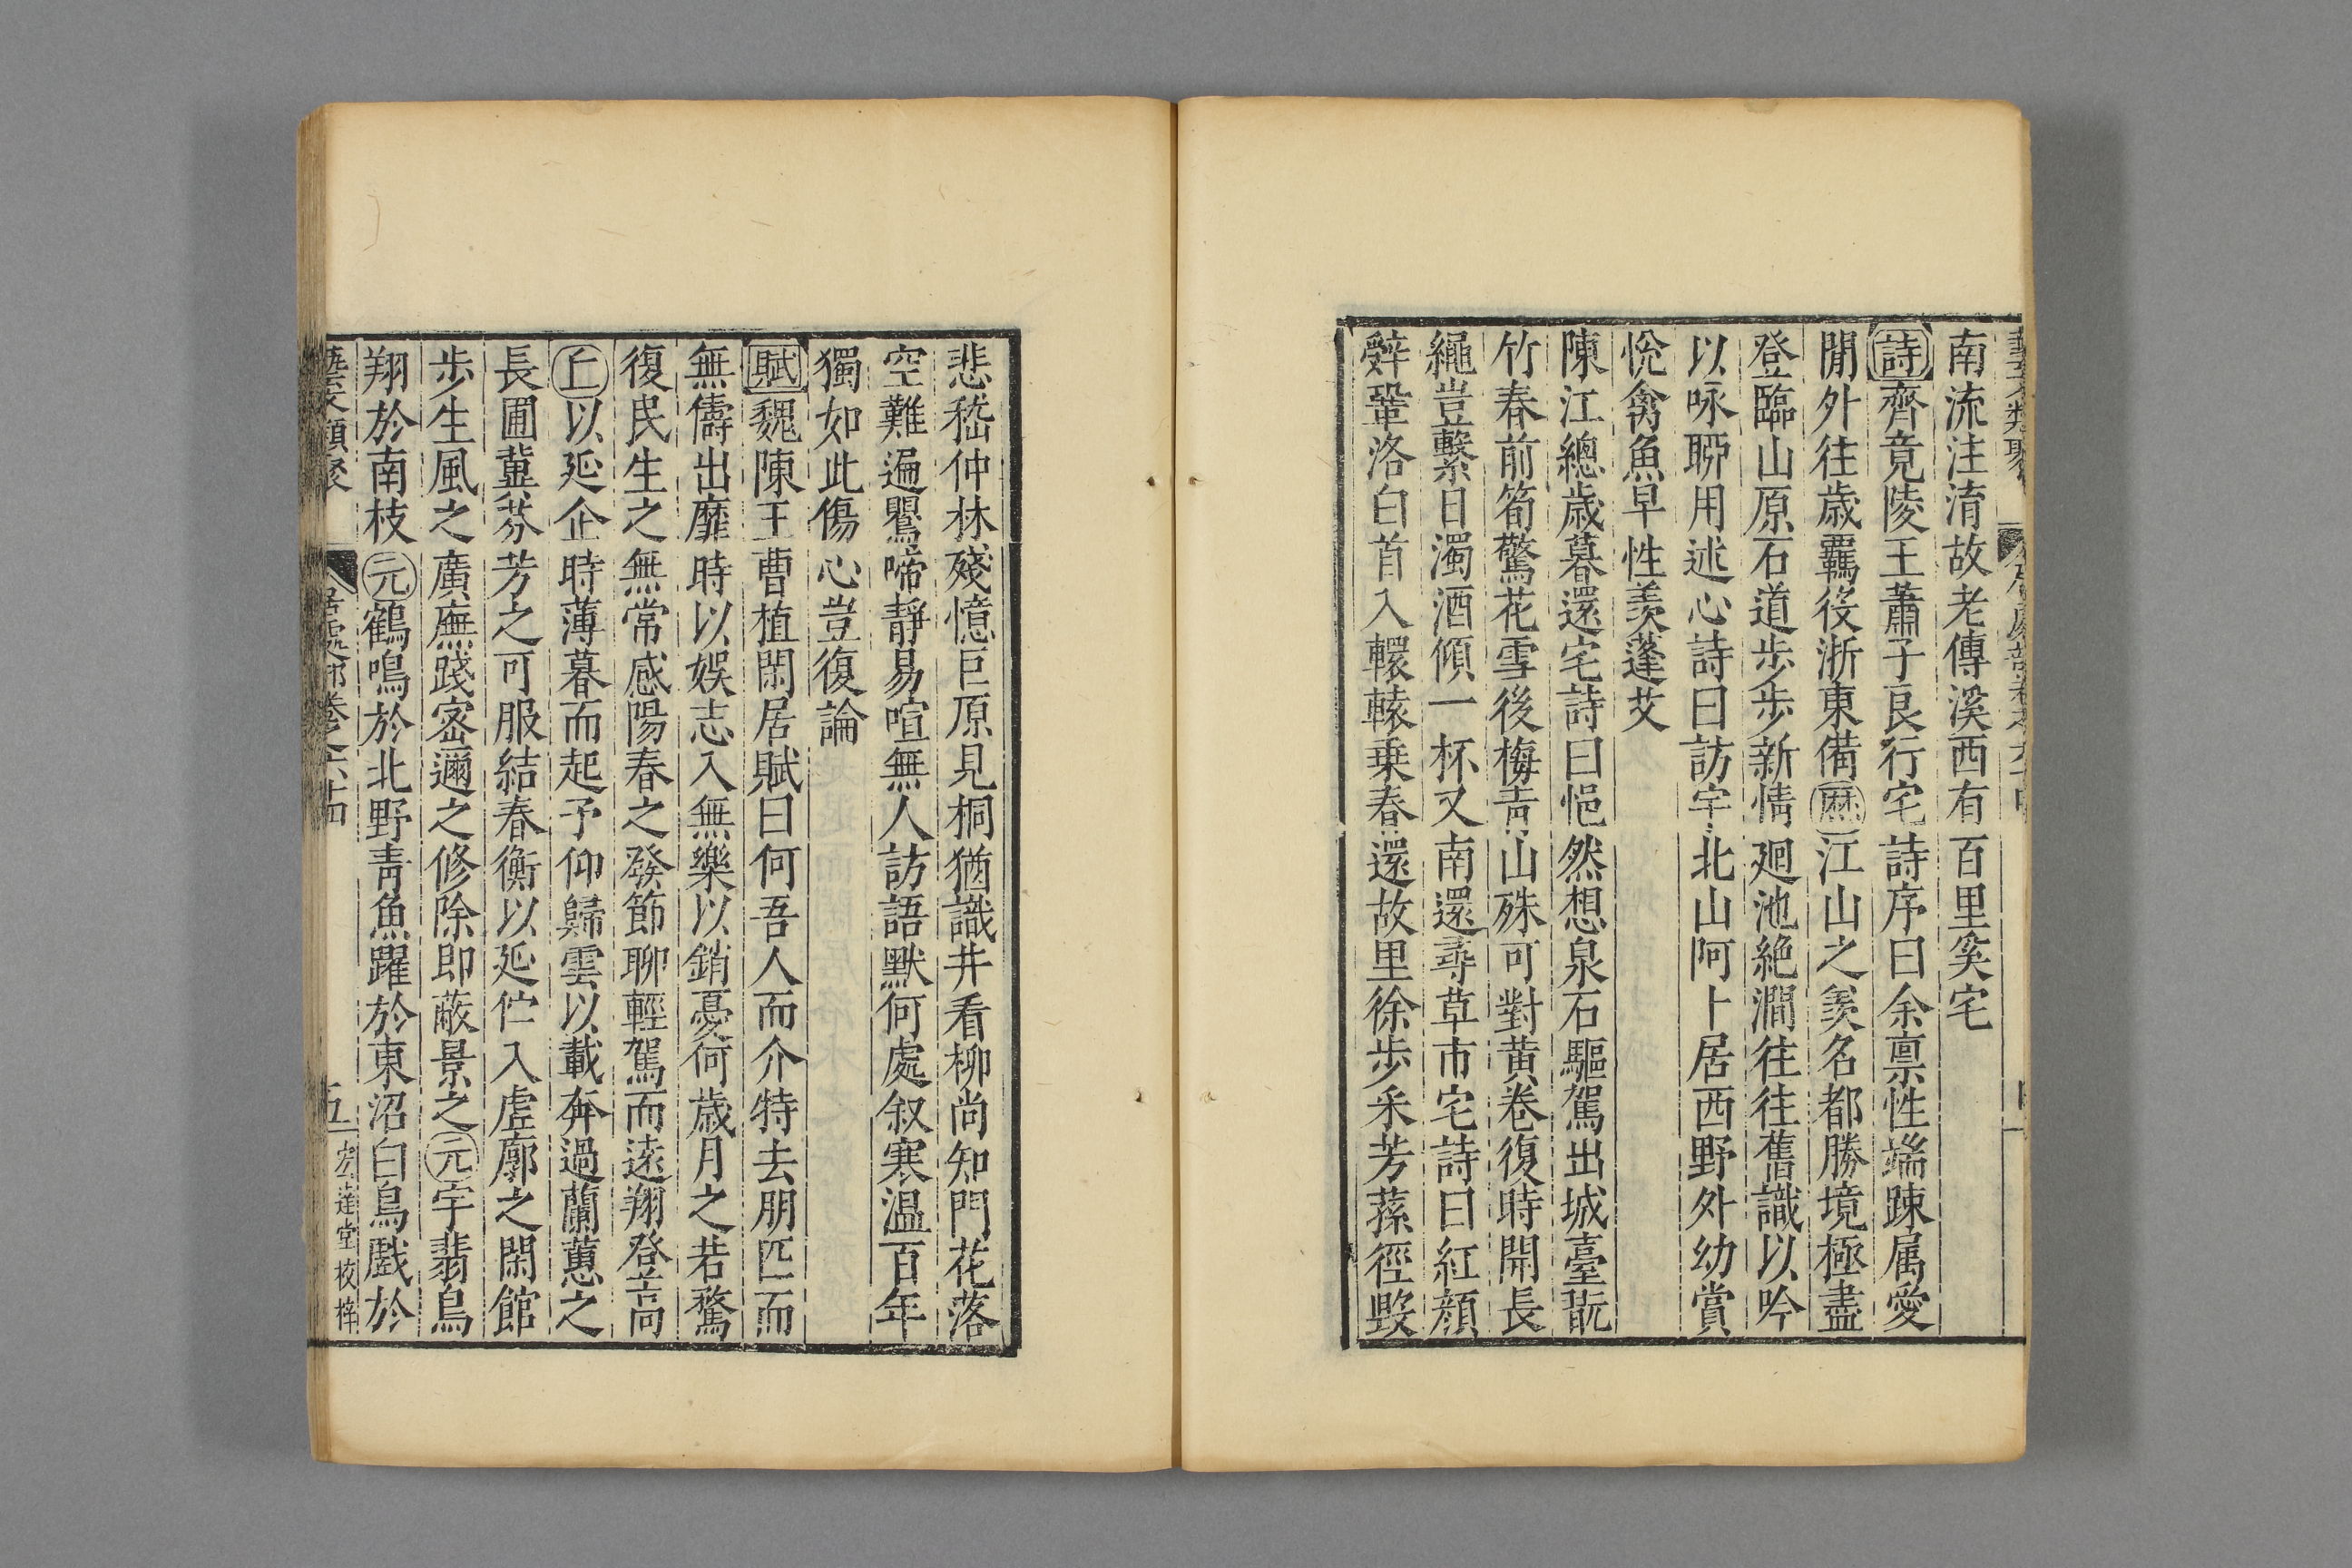 藝文類聚 居處部卷之六十四 四
南流注淯故老傳溪西有百里奚宅
詩齊竟陵王蕭子良行宅詩序曰余禀性端踈属愛
閒外往歲羈役浙東備歷江山之羙名都勝境極盡
登臨山原石道步步新情廻池絶澗往往舊識以吟
以咏聊用述心詩曰訪宇北山阿卜居西野外幼賞
悅禽魚早性羙蓬艾
陳江總歲暮還宅詩曰悒然想泉石驅駕出城臺翫
竹春前筍驚花雪後梅靑山殊可對黃卷復時開長
繩豈繫日濁酒傾一杯又南還尋草市宅詩曰紅顏
辤鞏洛白首入轘轅乗春還故里徐步采芳蓀徑毀
悲嵇仲林殘憶巨原見桐猶識井看柳尚知門花落
空難遍鸎啼靜易喧無人訪語默何處叙寒温百年
獨如此傷心豈復論
賦魏陳王曹植閑居賦曰何吾人而介特去朋匹而
無儔出靡時以娛志入無樂以銷憂何歲月之若騖
復民生之無常感陽春之發節聊輕駕而遠翔登高
丘以延企時薄暮而起予仰歸雲以載奔過蘭蕙之
長圃冀芬芳之可服結春衡以延佇入虛廓之閑館
步生風之廣廡踐密邇之修除即蔽景之元宇翡鳥
翔於南枝元鶴鳴於北野靑魚躍於東沼白鳥戲於
藝文類聚 居處部卷六十四 五 宏達堂校梓